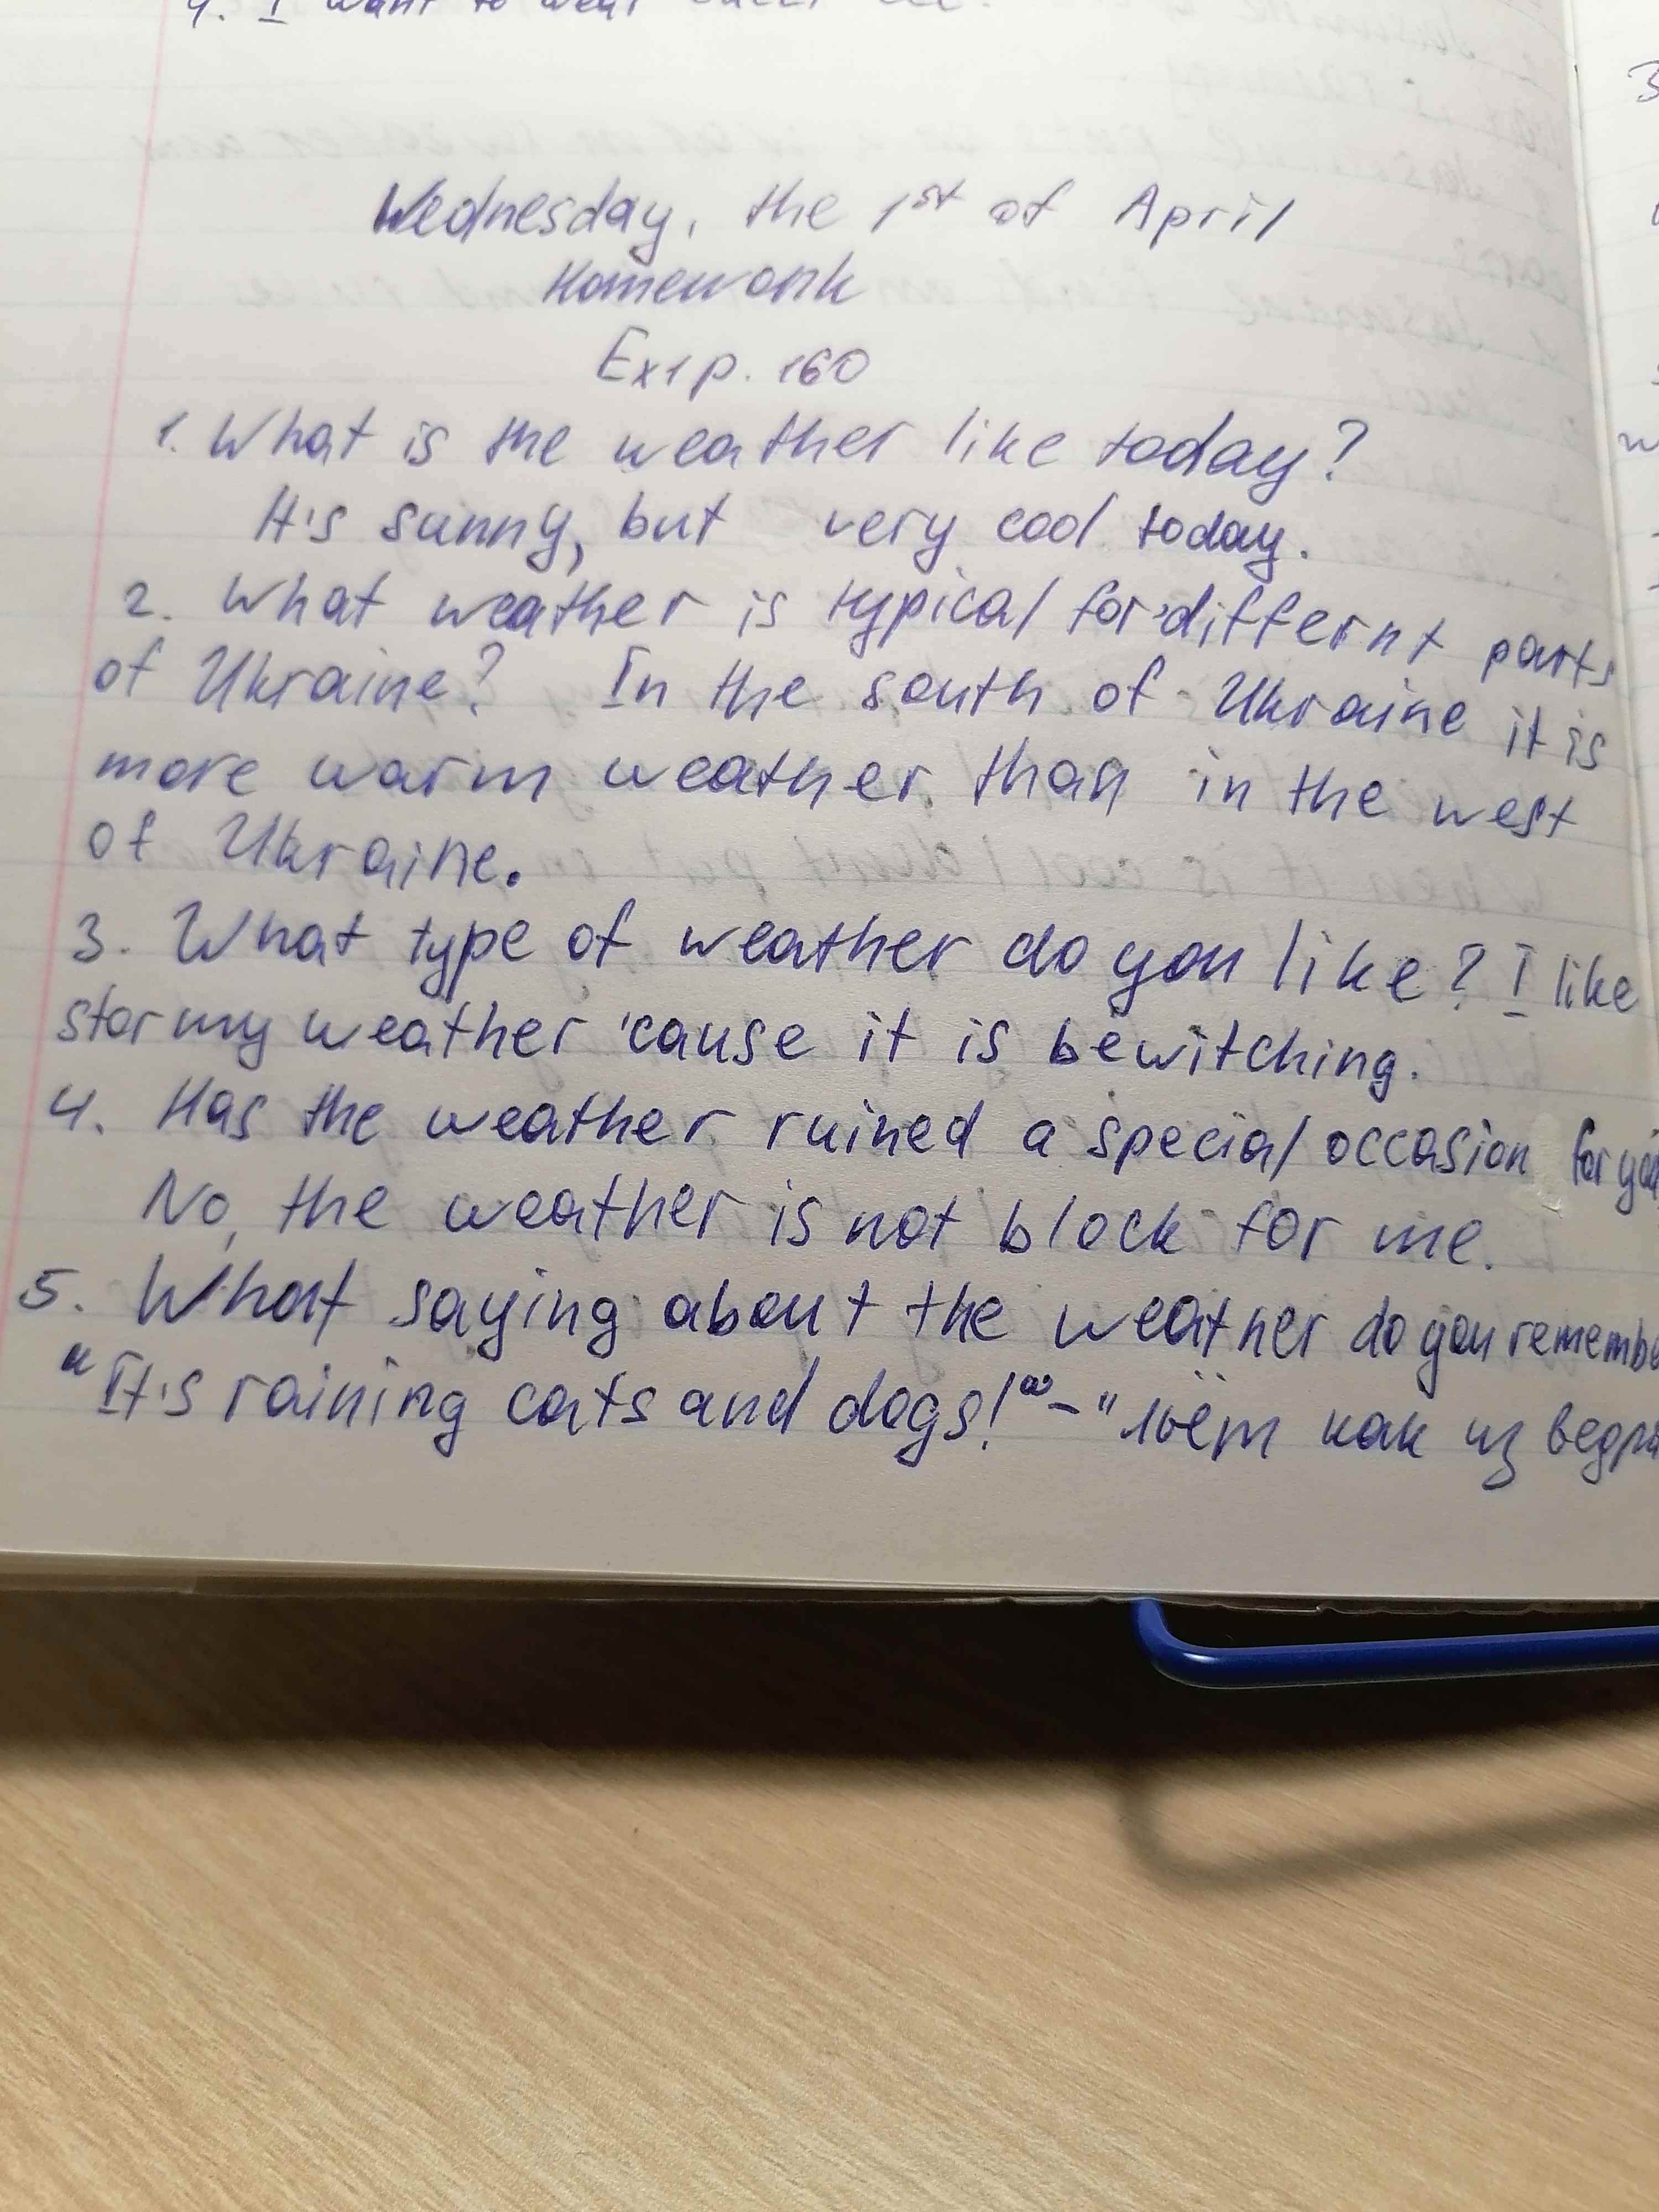 4. I want to wear
Wednesday, the 1st of April
Homework
Ex1 p. 160
1. What is the weather like today?
It's sunny, but very cool today.
2. What weather is typical for differnt parts
of Ukraine? In the south of Ukraine it is
more warm weather than in the west
of Ukraine.
3. What type of weather do you like? I like
stormy weather 'cause it is bewitching.
4. Has the weather ruined a special occasion for you
No, the weather is not block for me.
5. What saying about the weather do you rememb
"It's raining cats and dogs!" - "льём как из ведра